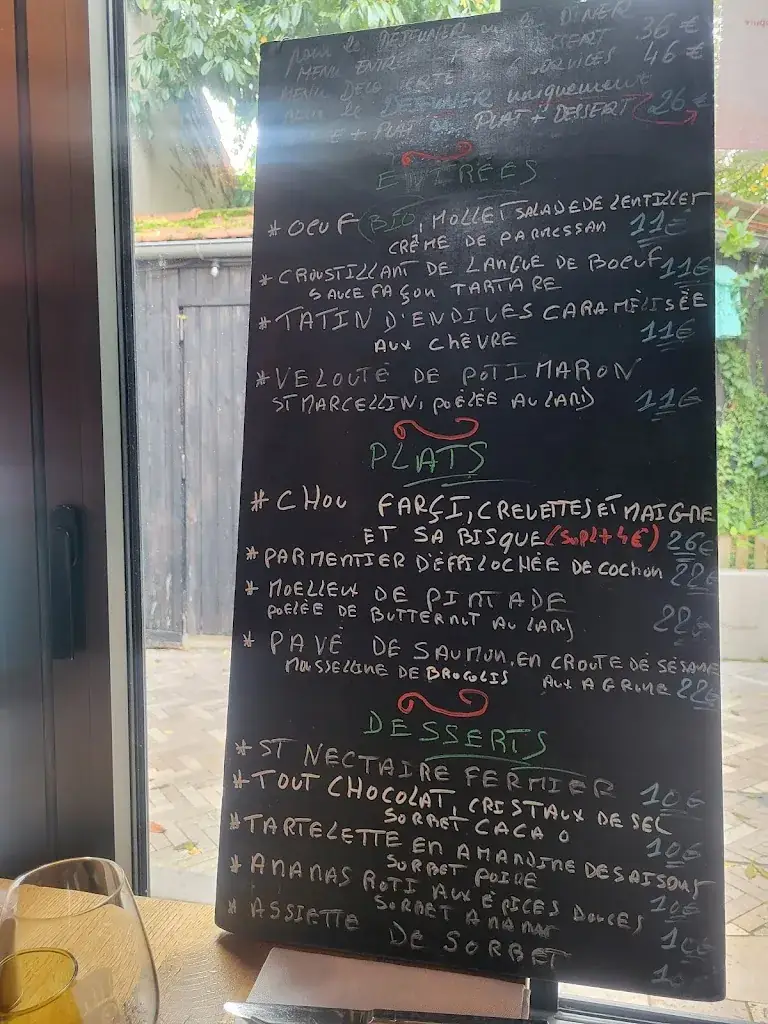 pour le DÉJEUNER ou le DINER
MENU ENTRÉE + PLAT + DESSERT 36 €
MENU DECOUVERTE en 6 SERVICES 46 €
pour le DÉJEUNER uniquement
+ PLAT ou PLAT + DESSERT 26 €
ENTRÉES
* OEUF BIO, MOLLET SALADE DE LENTILLES
CRÊME DE PARMESSAN 11€
* CROUSTILLANT DE LANGUE DE BOEUF 11€
SAUCE FAÇON TARTARE
* TATIN D'ENDIVES CARAMÈLISÉE
AUX CHÊVRE 11€
* VELOUTÉ DE POTIMARON
ST MARCELLIN, POÊLÉE AU LARD 11€
PLATS
* CHOU FARÇI, CREVETTES ET MAIGRE
ET SA BISQUE (SUPL+4€) 26€
* PARMENTIER D'ÉFFILOCHÉE DE COCHON 22€
* MOELLEUX DE PINTADE
POÊLÉE DE BUTTERNUT AU LARD 22€
* PAVÉ DE SAUMON, EN CROUTE DE SÉSAME
MOUSSELINE DE BROCOLIS AUX AGRUME 22€
DESSERTS
* ST NECTAIRE FERMIER 10€
* TOUT CHOCOLAT, CRISTAUX DE SEL
SORBET CACAO 10€
* TARTELETTE EN AMANDINE DE SAISONS
SORBET POIRE 10€
* ANANAS ROTI AUX ÉPICES DOUCES
SORBET ANANAS 10€
* ASSIETTE DE SORBET